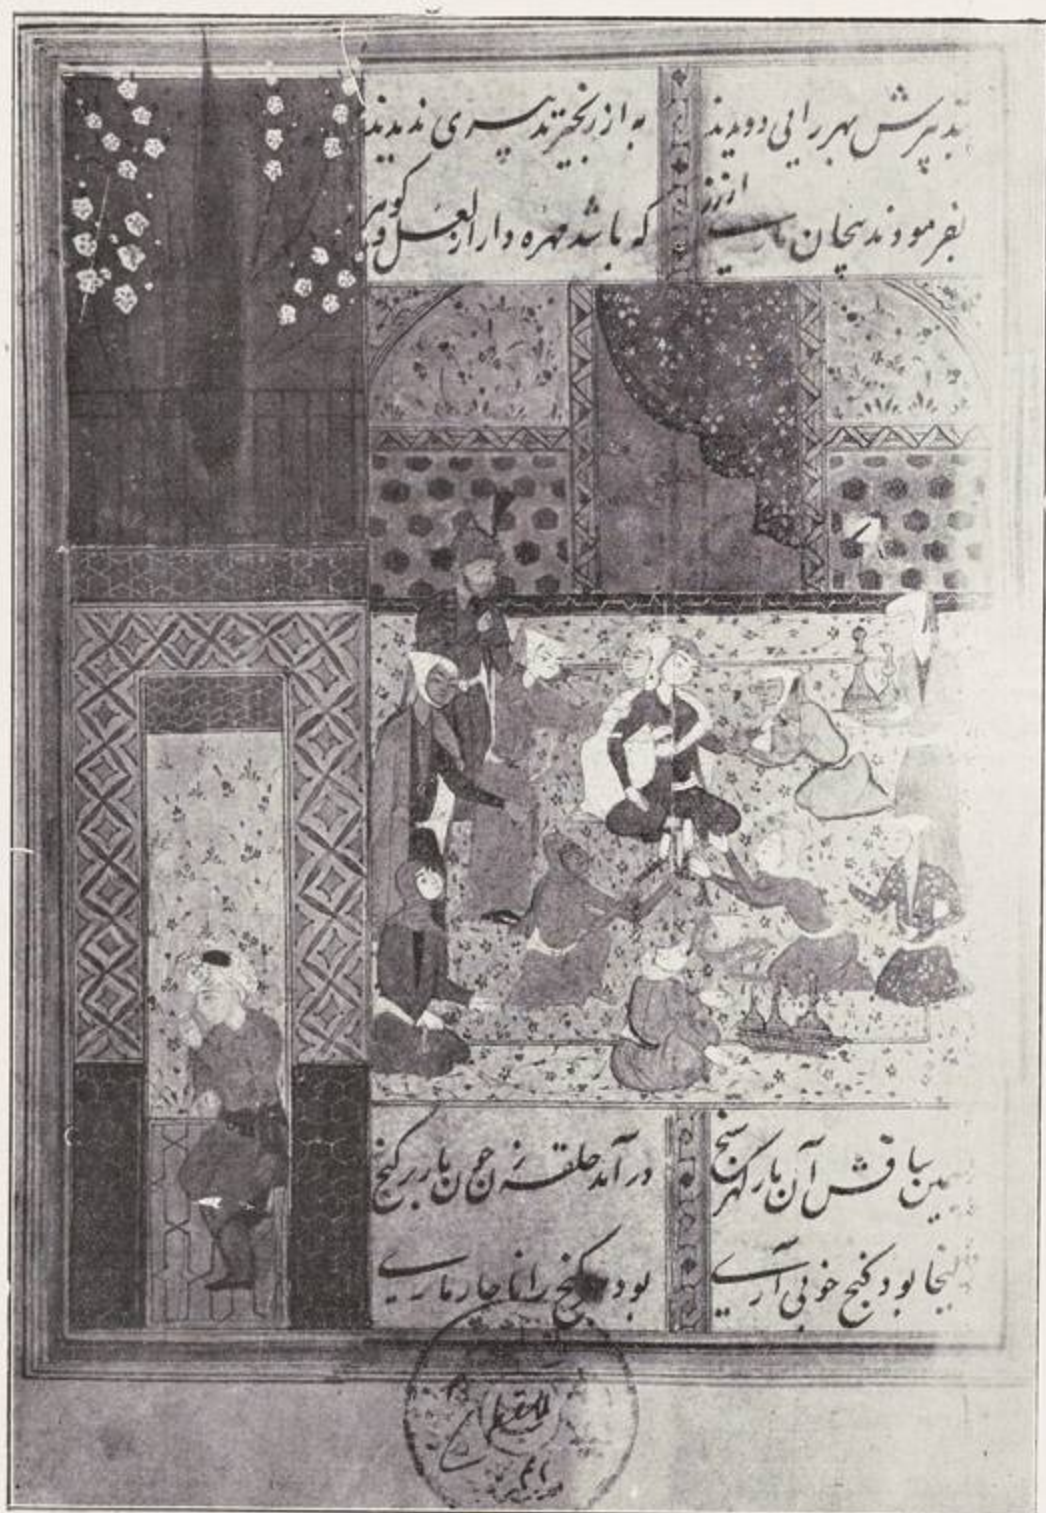 تدبیرش بهر رایی دویدند به از زنجیر تدبیری ندیدند
بفرمودند پیچان ماری از زر که باشد مهره دار از لعل و گوهر
سیمین ساقش آن مار گهر سنج درآمد حلقه زن چون مار بر گنج
زلیخا بود گنج خوبی آری بود گنج را ناچار ماری